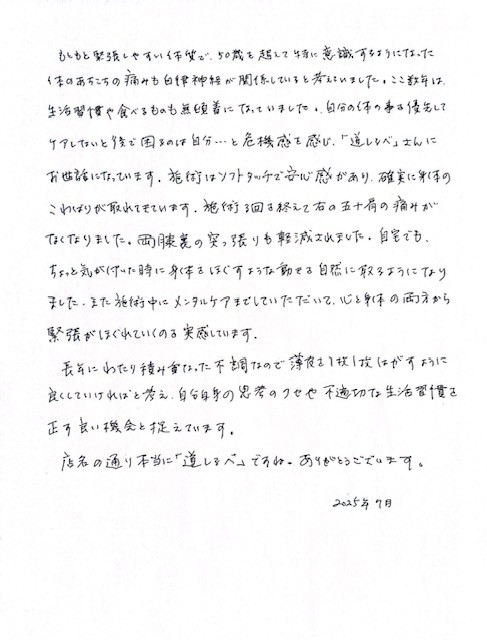 もともと緊張しやすい体質で、50歳を超えて特に意識するようになった
体のあちこちの痛みも自律神経が関係していると考えていました。ここ数年は、
生活習慣や食べるものも無頓着になっていました。自分の体の事を優先して
ケアしないと後で困るのは自分…と危機感を感じ、「道しるべ」さんに
お世話になっています。施術はソフトタッチで安心感があり、確実に身体の
こわばりが取れてきています。施術3回を終えて右の五十肩の痛みが
なくなりました。両膝裏の突っ張りも軽減されました。自宅でも、
ちょっと気が付いた時に身体をほぐすような動きを自然に取るようになり
ました。また施術中にメンタルケアまでしていただいて、心と身体の両方から
緊張がほぐれていくのを実感しています。
長年にわたり積み重なった不調なので薄皮を1枚1枚はがすように
良くしていければと考え、自分自身の思考のクセや不適切な生活習慣を
正す良い機会と捉えています。
店名の通り本当に「道しるべ」ですね。ありがとうございます。
2025年7月